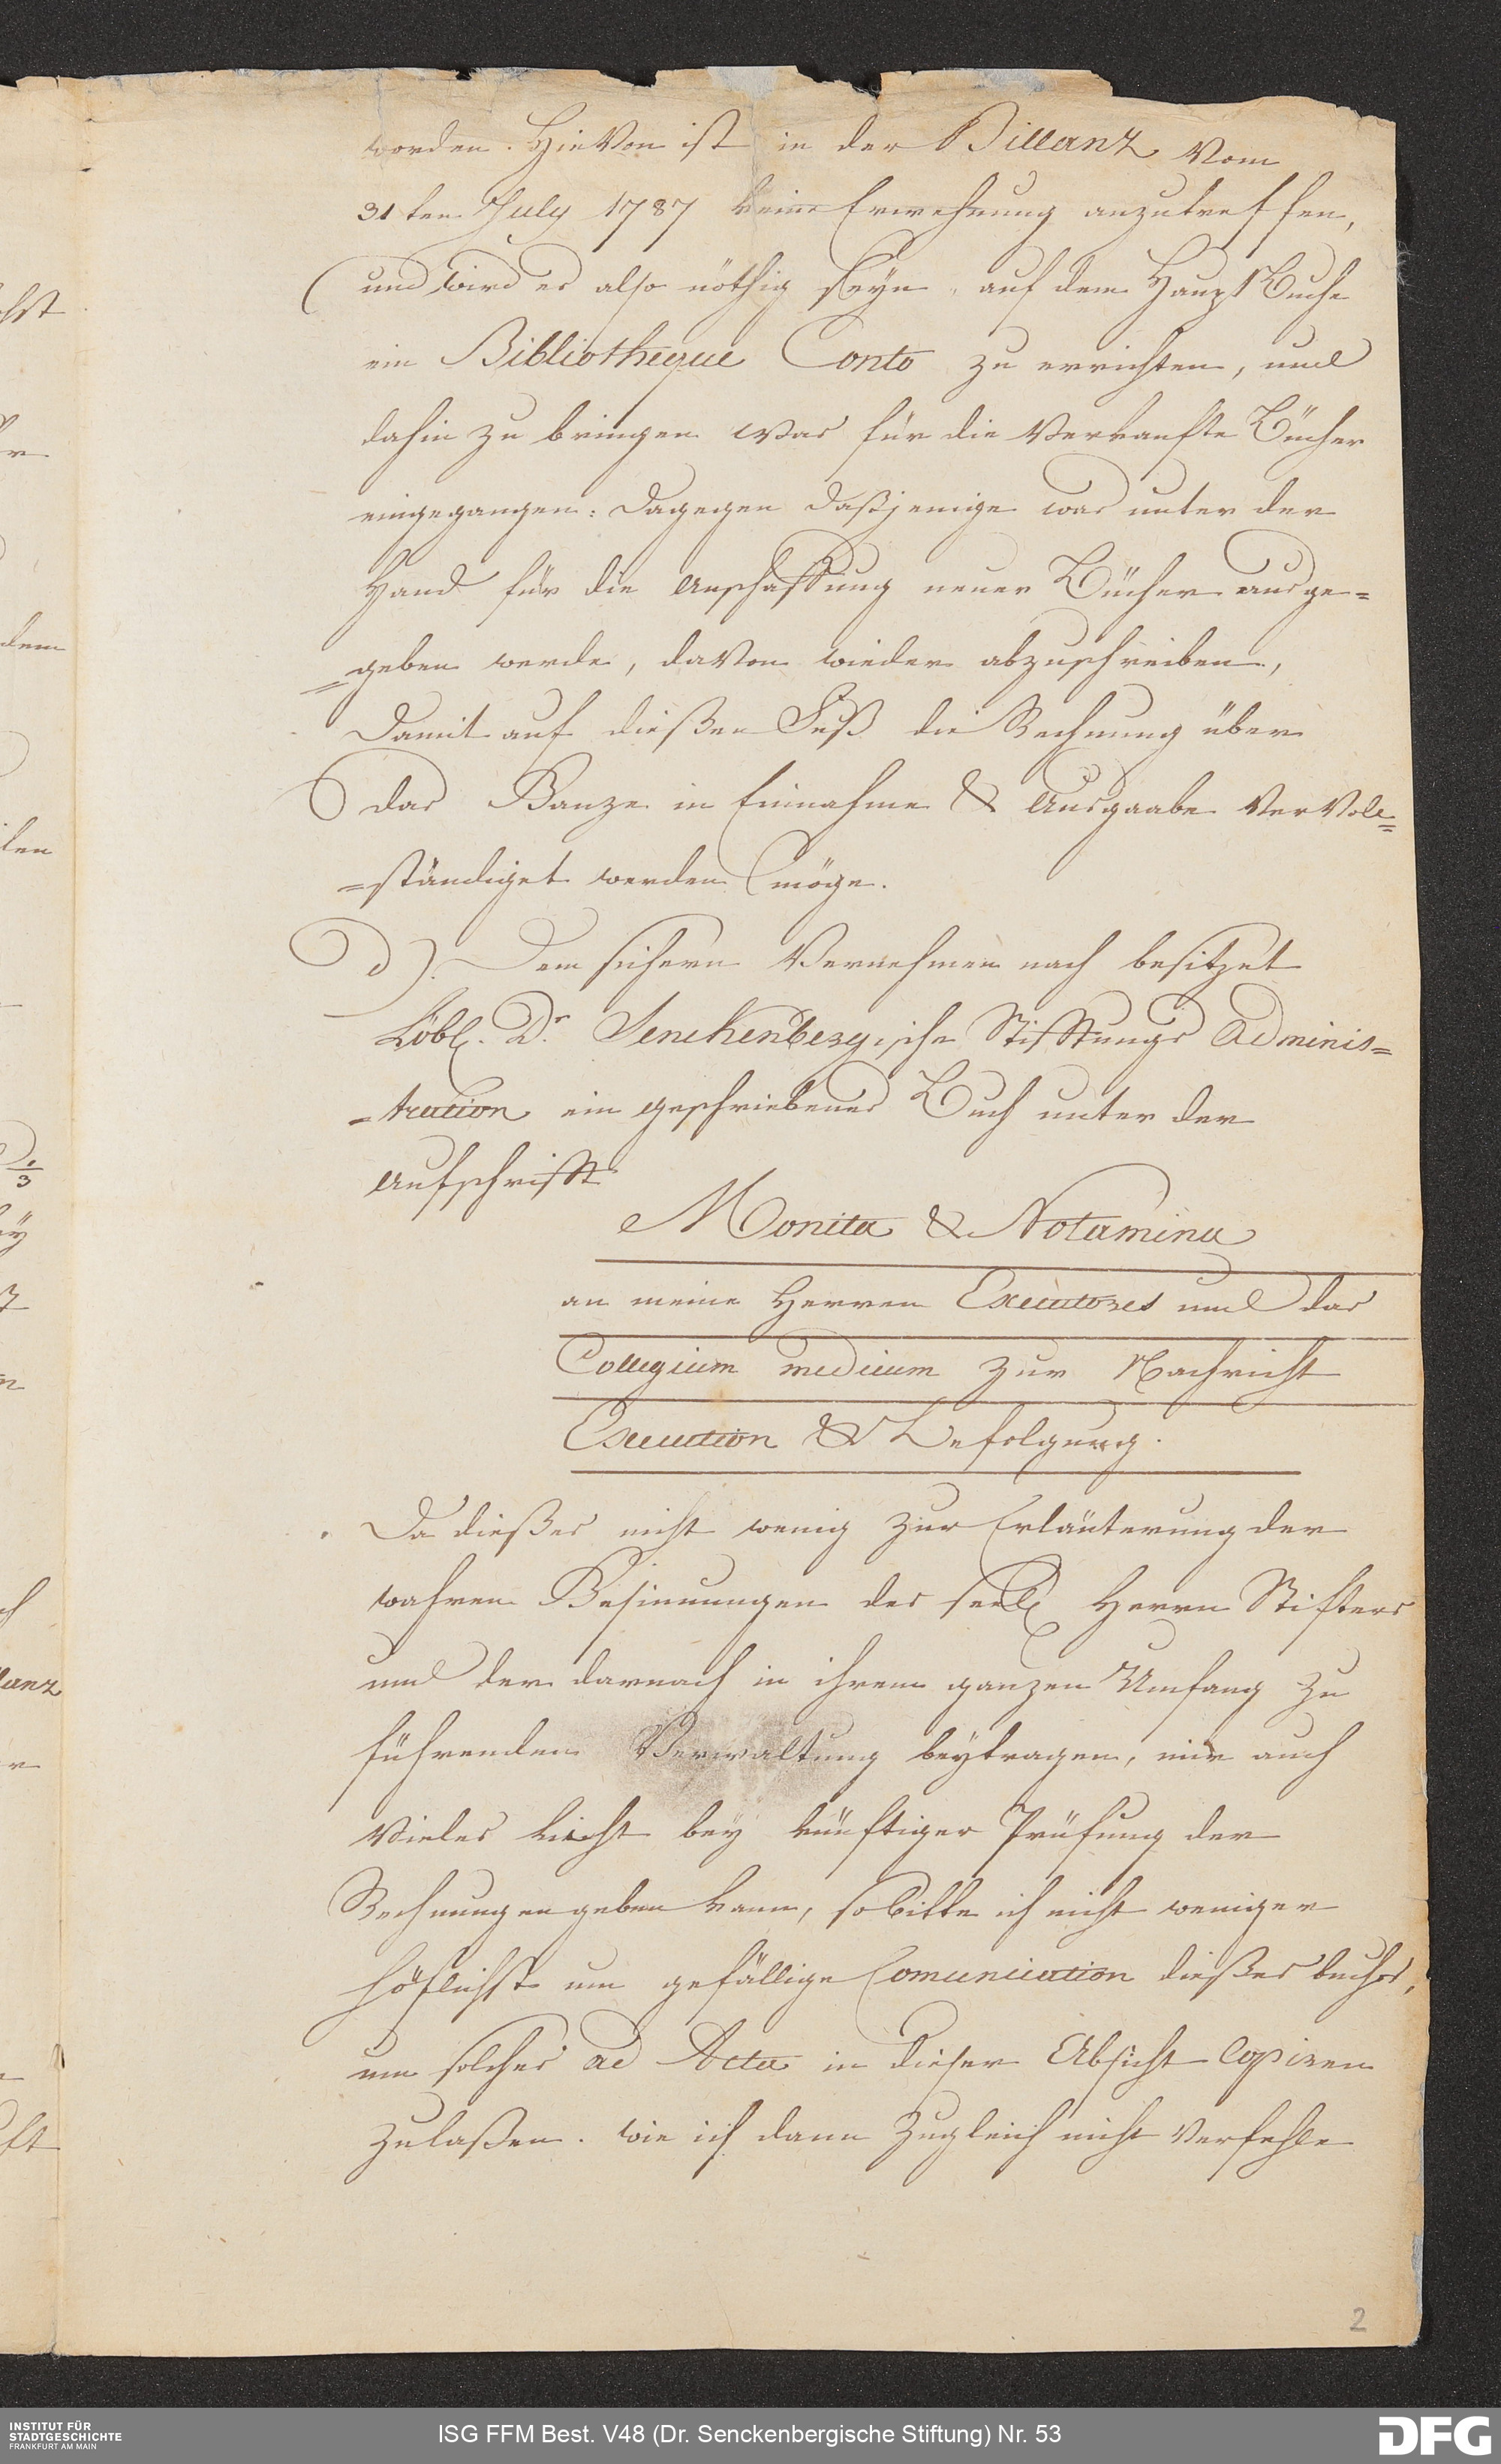 worden. Hievon ist in der Billanz vom
31ten July 1787 keine Erwehnung anzutreffen,
und wird es also nöthig seyn, auf dem Haupt Buche
ein Bibliotheque Conto zu errichten, und
dahin zu bringen was für die verkaufte Bücher
eingegangen: dagegen daßjenige was unter der
Hand für die Anschaffung neuer Bücher ausge=
=geben werde, davon wieder abzuschreiben,
Damit auf dießen Fuß die Rechnung über
das Ganze in Einnahme & Ausgaabe vervoll=
=ständiget werden möge.
d). Dem sichern Vernehmen nach besitzet
Löbl. Dr. Senckenbergische Stiftungs Adminis=
=tration ein geschriebenes Buch unter der
Aufschrifft
Monita & Notamina
an meine Herren Executores und das
Collegium medicum zur Nachricht
Execution & Befolgung.
Da dießes nicht wenig zur Erläuterung der
wahren Gesinnungen des seel. Herrn Stifters
und der darnach in ihrem ganzen Umfang zu
führenden Verwaltung beytragen, mir auch
vieles Licht bey künftiger Prüfung der
Rechnungen geben kann, so bitte ich nicht weniger
höflichst um gefällige Comunication dießes buchs,
um solches ad Acta in dieser Absicht Copiren
zulaßen. wie ich dann zugleich nicht verfehle
2
hst
dem
len
1/3
lanz
INSTITUT FÜR
STADTGESCHICHTE
FRANKFURT AM MAIN
ISG FFM Best. V48 (Dr. Senckenbergische Stiftung) Nr. 53
DFG